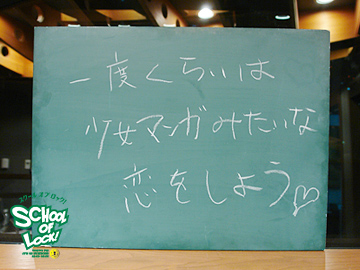 一度くらいは
少女マンガみたいな
恋をしよう♡
スクール オブ ロック!
SCHOOL
OF
LOCK!